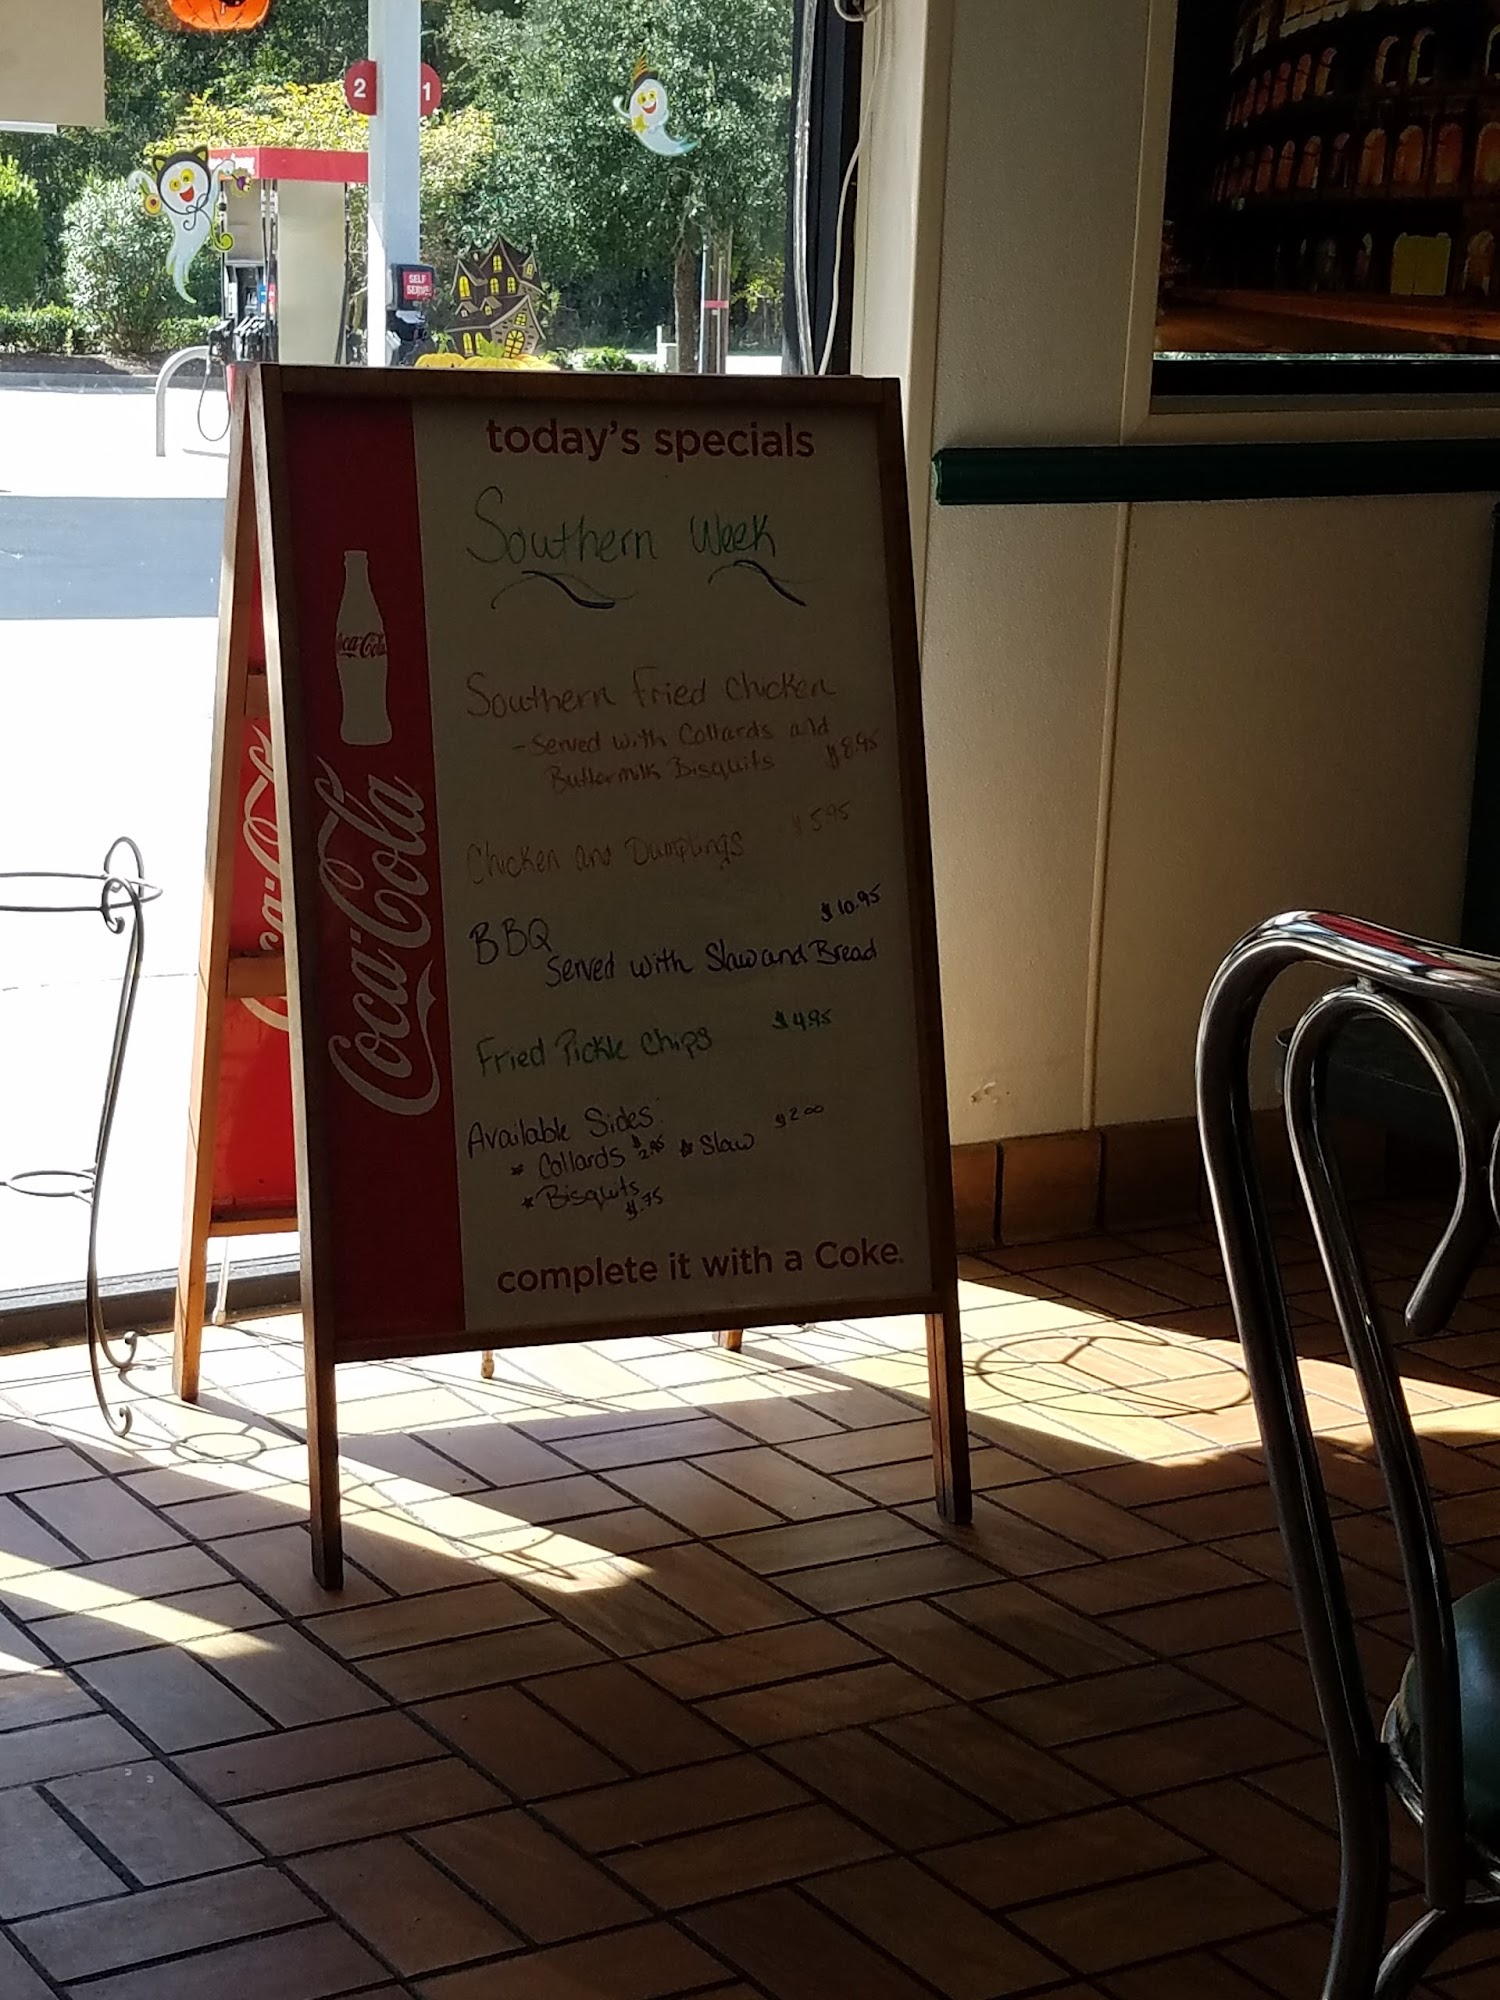 2 1
SELF
SERVE
today's specials
Southern Week
Southern Fried Chicken
- Served with Collards and
Buttermilk Bisquits $8.95
Chicken and Dumplings $5.95
BBQ $10.95
Served with Slaw and Bread
Fried Pickle Chips $4.95
Available Sides:
* Collards $2.95 * Slaw $2.00
* Bisquits
$.75
complete it with a Coke.
Coca-Cola
Coca-Cola